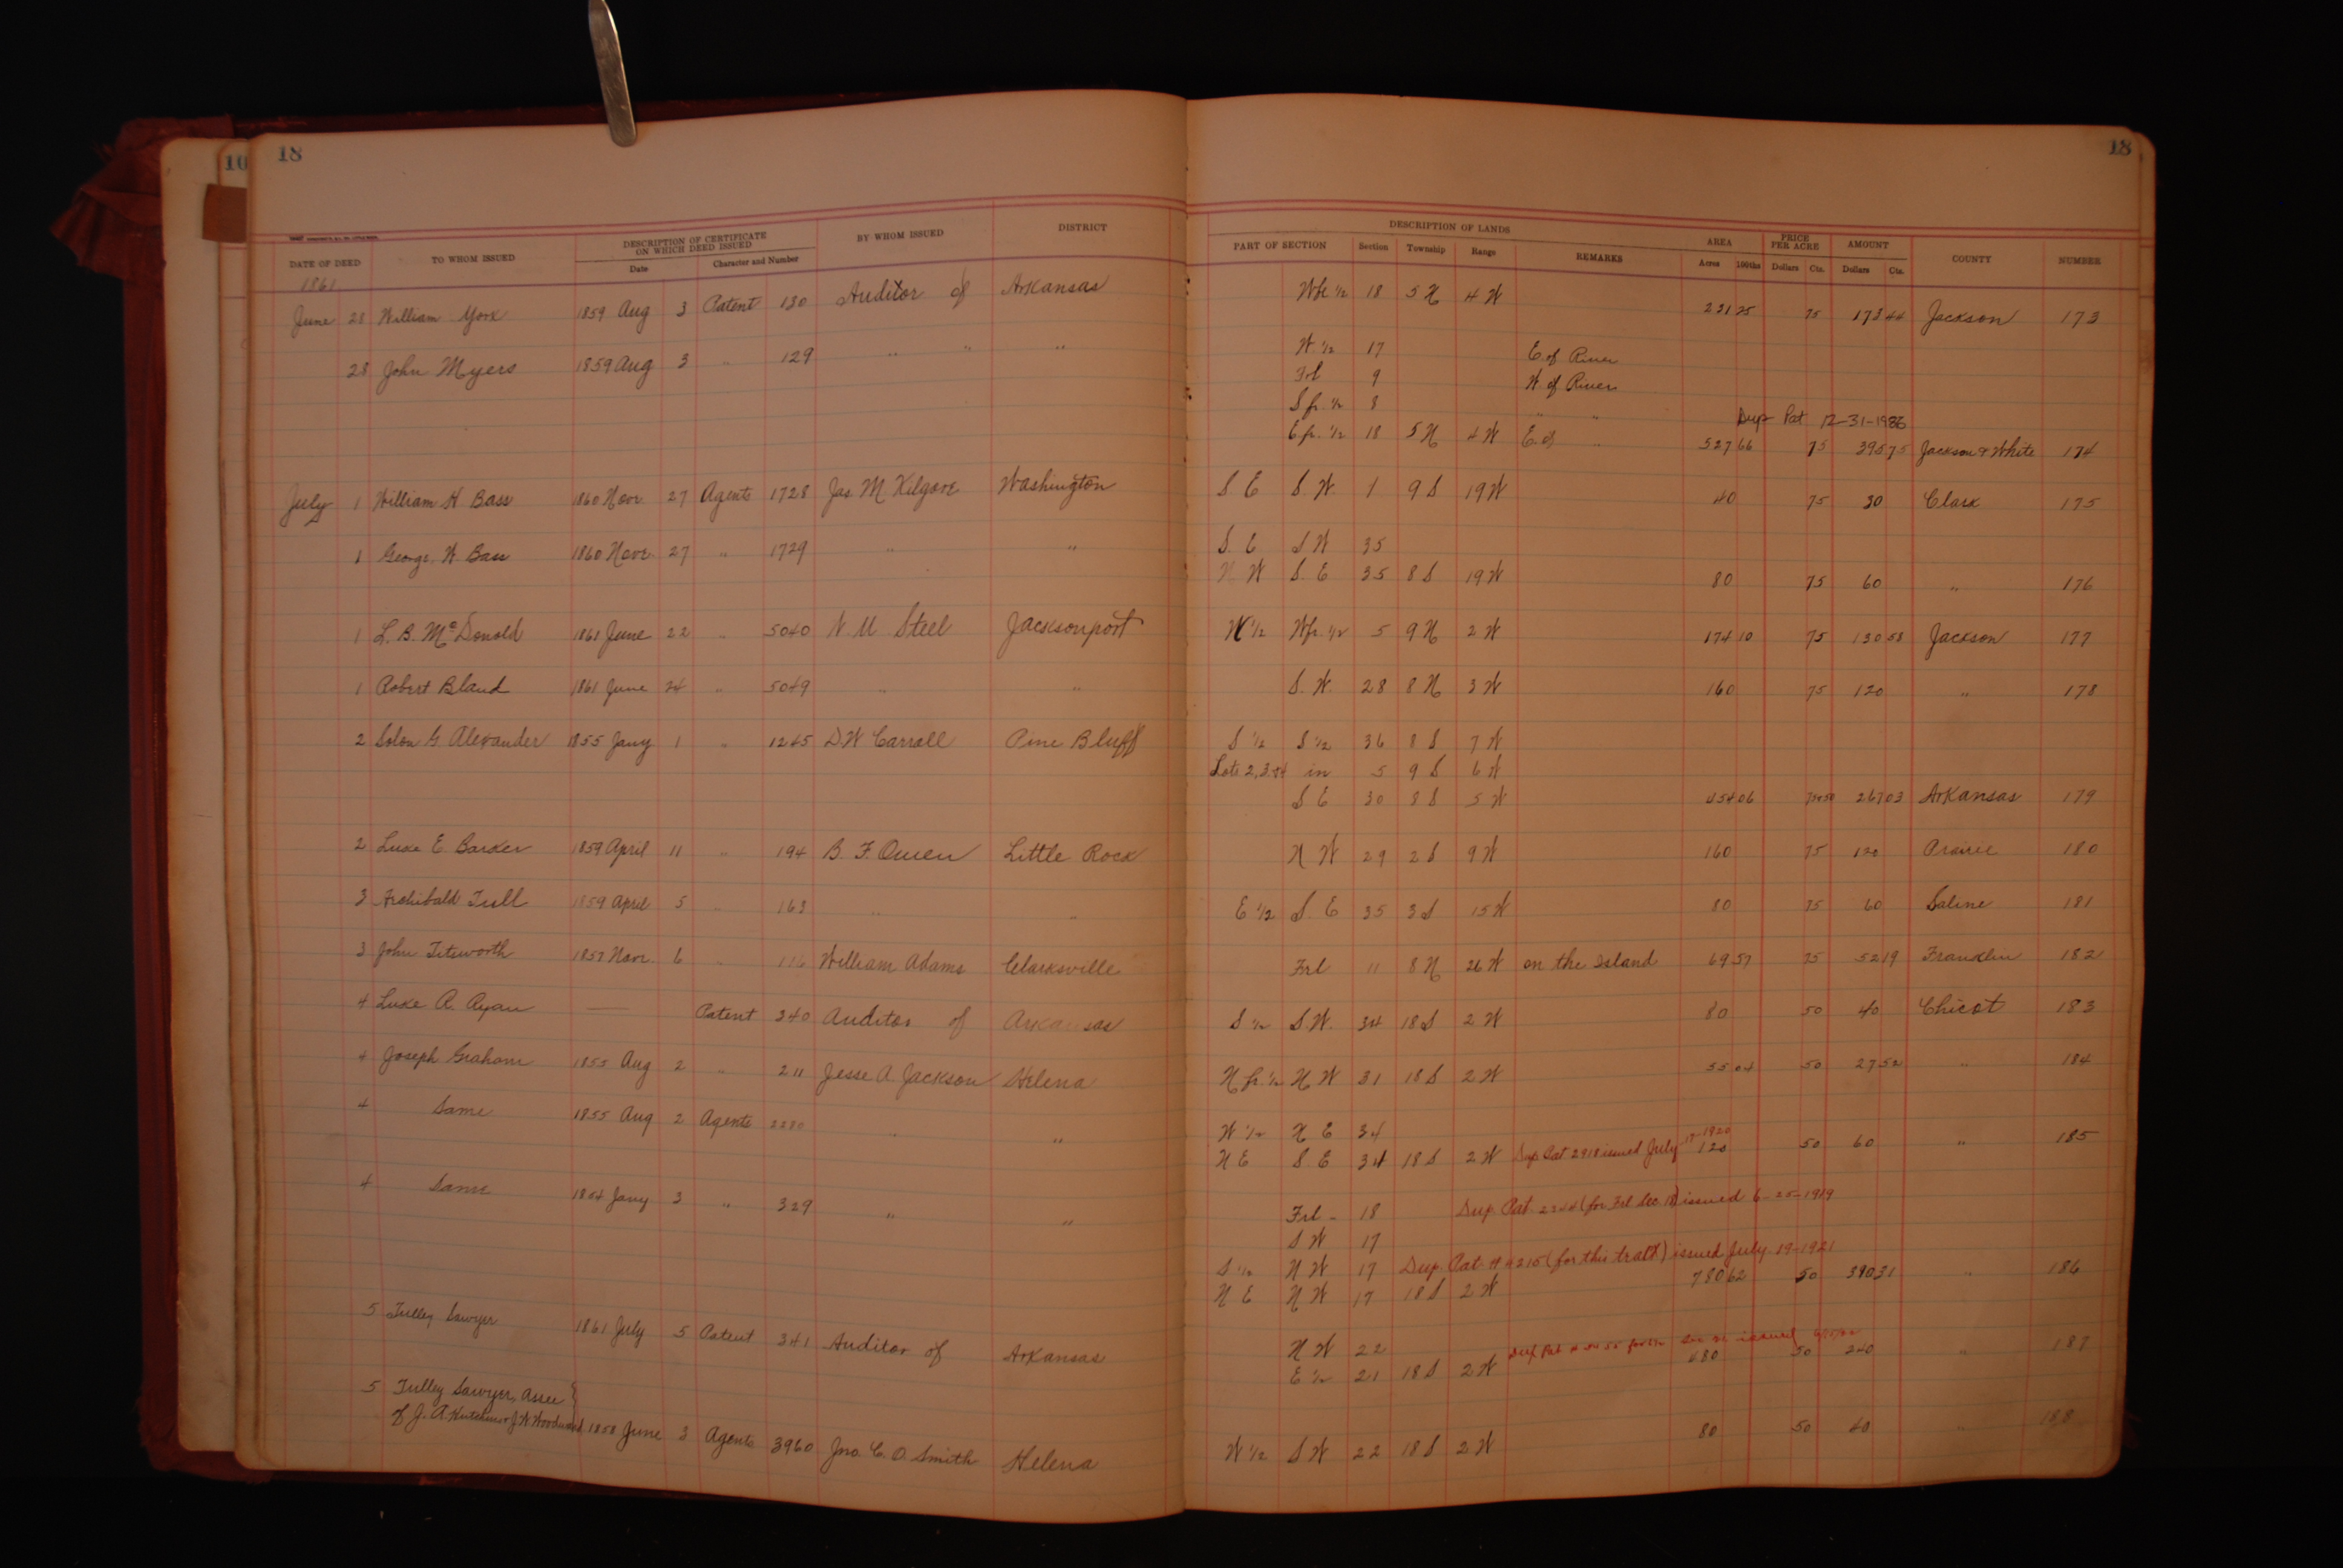 10
18
18
DATE OF DEED TO WHOM ISSUED DESCRIPTION OF CERTIFICATE ON WHICH DEED ISSUED Date Character and Number BY WHOM ISSUED DISTRICT
DESCRIPTION OF LANDS PART OF SECTION Section Township Range REMARKS AREA Acres 100ths PRICE PER ACRE Dollars Cts. AMOUNT Dollars Cts. COUNTY NUMBER
1861
June 28 William York 1859 Aug 3 Patent 130 Auditor of Arkansas Wfr 1/2 18 5 N 4 W 231 25 75 173 44 Jackson 173
28 John Myers 1859 Aug 3 " 129 " " " W. 1/2 17 E of River
Frl 9 W. of River
S fr. 1/2 8 " "
Dup Pat 12-31-1986
E fr. 1/2 18 5 N 4 W E of " 527 66 75 395 75 Jackson & White 174
July 1 William H Bass 1860 Novr 27 Agents 1728 Jas M Kilgore Washington S. E S. W. 1 9 S 19 W 40 75 30 Clark 175
1 George. W. Bass 1860 Novr 27 " 1729 " " S. E S W 35
N W S. E 35 8 S 19 W 80 75 60 " 176
1 L. B. McDonold 1861 June 22 " 5040 N. U Steel Jacksonport W 1/2 Wfr. 1/2 5 9 N 2 W 174 10 75 130 58 Jackson 177
1 Robert Bland 1861 June 24 " 5049 " " S. W. 28 8 N 3 W 160 75 120 " 178
2 Solon G. Alexander 1855 Jany 1 " 1245 D. W Carroll Pine Bluff S 1/2 S 1/2 36 8 S 7 W
Lots 2, 3 & 4 in 5 9 S 6 W
S E 30 8 S 5 W 454 06 75&50 267 03 Arkansas 179
2 Luke E. Barker 1859 April 11 " 194 B. F. Owen Little Rock N W 29 2 S 9 W 160 75 120 Prairie 180
3 Archibald Tull 1859 April 5 " 163 " " E 1/2 S. E 35 3 S 15 W 80 75 60 Saline 181
3 John Titsworth 1857 Novr. 6 " 116 William Adams Clarksville Frl 11 8 N 26 W on the Island 69 57 75 52 19 Franklin 182
4 Luke A. Ryan — Patent 340 Auditor of Arkansas S 1/2 S. W. 34 18 S 2 W 80 50 40 Chicot 183
4 Joseph Graham 1855 Aug 2 " 211 Jesse A. Jackson Helena N fr. 1/2 N W 31 18 S 2 W 55 04 50 27 52 " 184
4 Same 1855 Aug 2 Agents 2280 " " W 1/2 N E 34
N E S. E 34 18 S 2 W Dup Pat 2918 issued July 17-1920 120 50 60 " 185
4 Same 1854 Jany 3 " 329 " " Frl - 18 Dup Pat (for Frl Sec. 18) issued 6-25-1919
S W 17
S 1/2 N W 17 Dup Pat # 4215 (for this tract) issued July-19-1921
N E N W 17 18 S 2 W 780 62 50 390 31 " 186
5 Tulley Sawyer 1861 July 5 Patent 341 Auditor of Arkansas N W 22 Dup Pat issued
E 1/2 21 18 S 2 W 480 50 240 " 187
5 Tulley Sawyer, Assee
of J. A. Hutchins & J. W. Woodward 1858 June 3 Agents 3960 Jno. C. O. Smith Helena W 1/2 S W 22 18 S 2 W 80 50 40 " 188